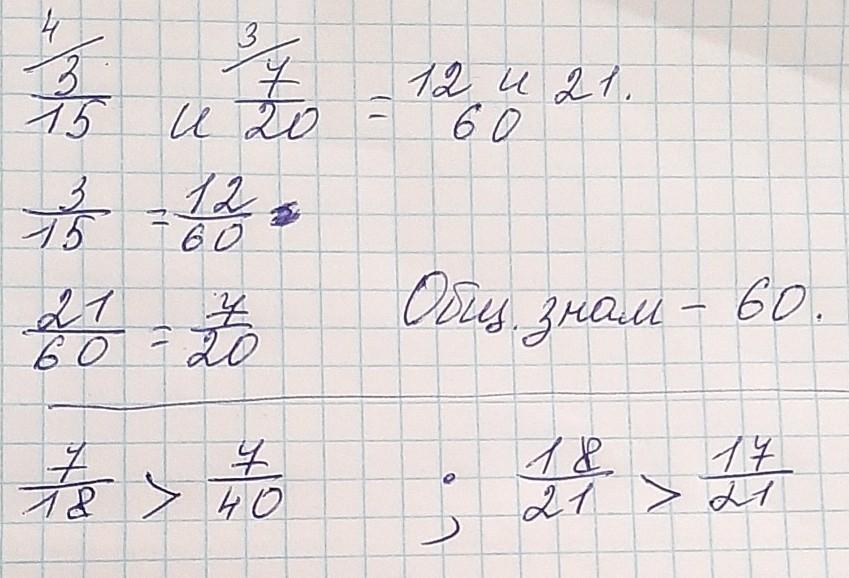 4 3
3/15 и 7/20 = 12 и 21. / 60
3/15 = 12/60
21/60 = 7/20 Общ. знам - 60.
7/18 > 7/40 ; 18/21 > 17/21